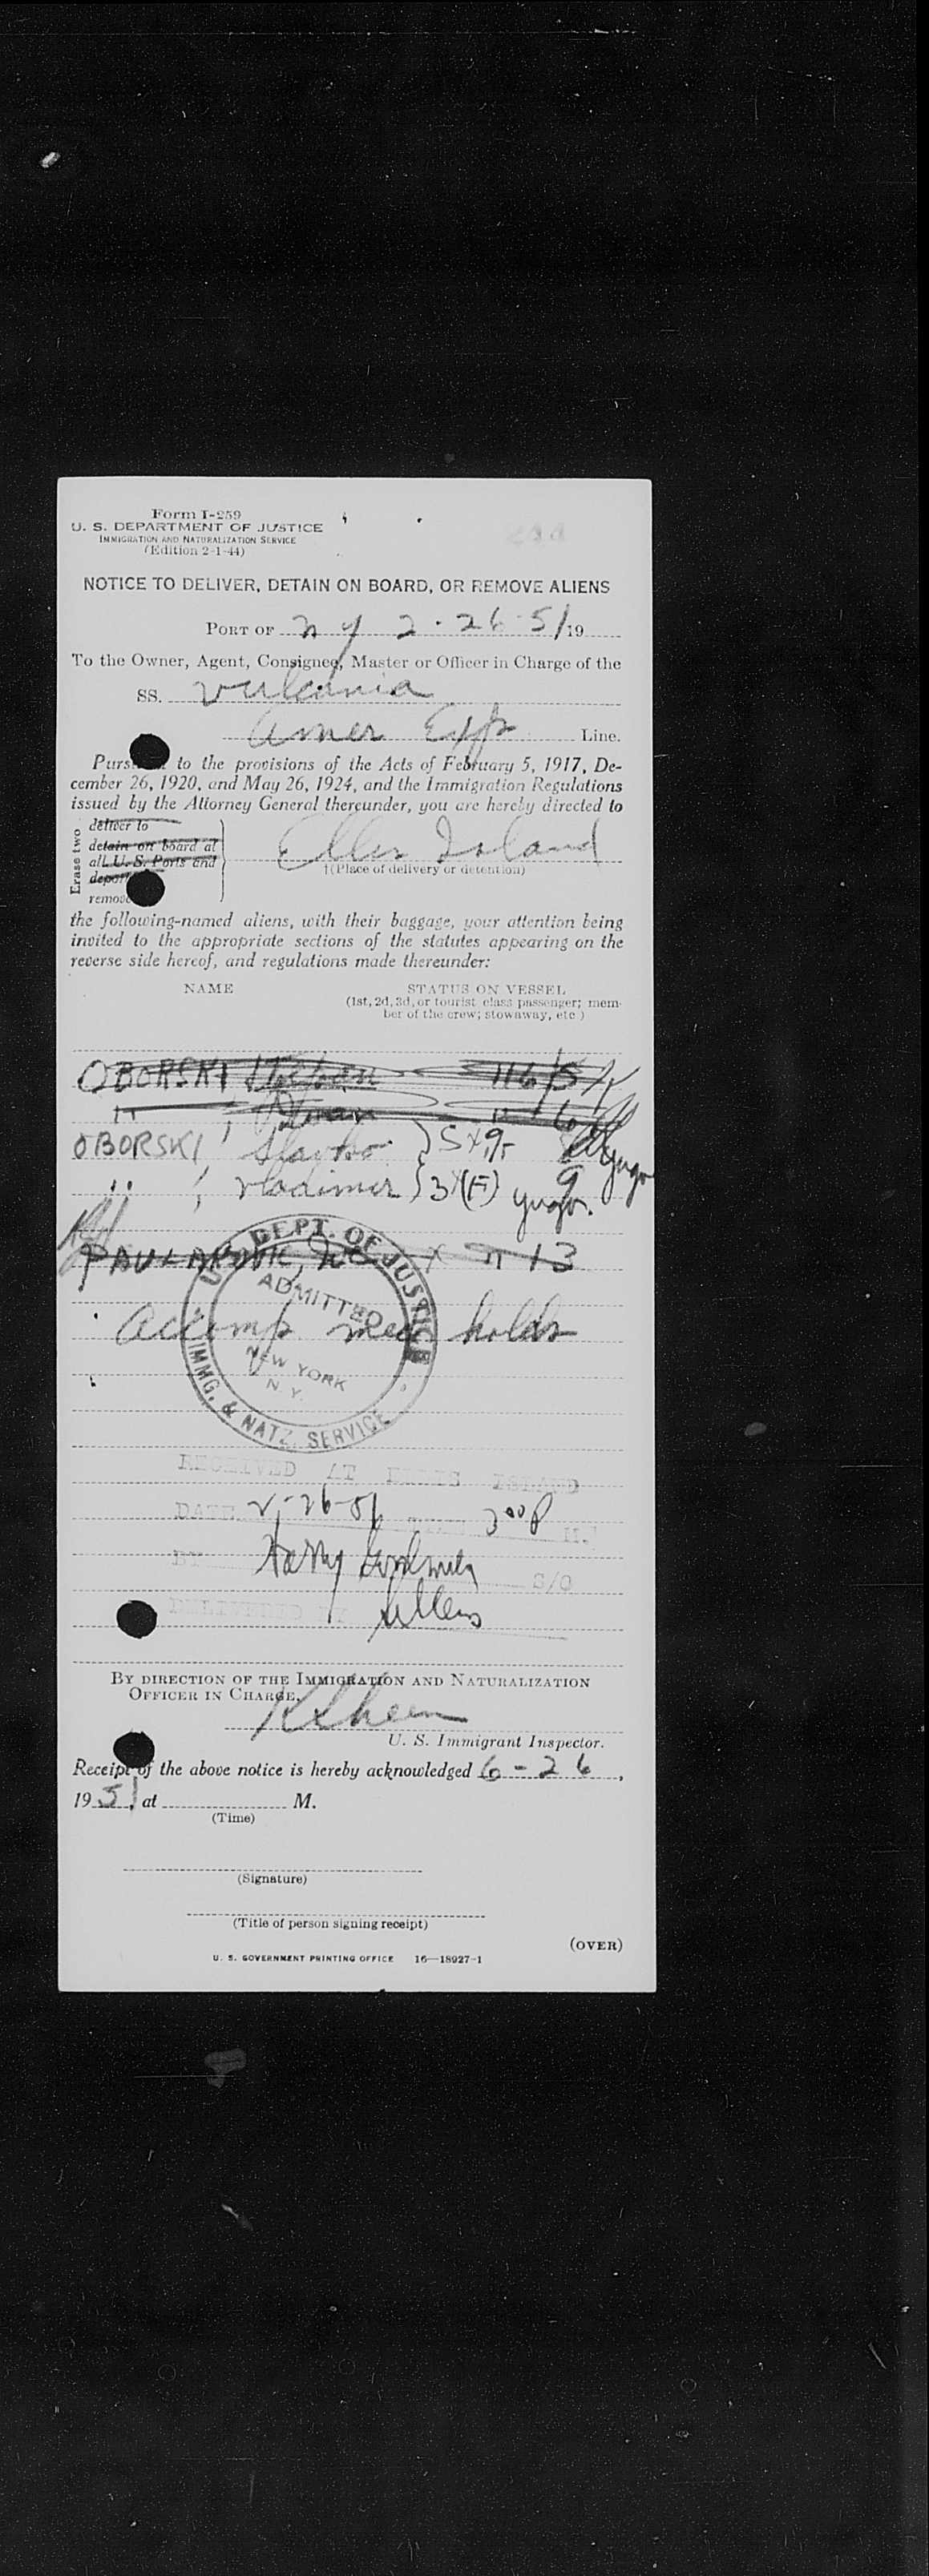 Form I-259
U. S. DEPARTMENT OF JUSTICE
IMMIGRATION AND NATURALIZATION SERVICE
(Edition 2-1-44)
NOTICE TO DELIVER, DETAIN ON BOARD, OR REMOVE ALIENS
PORT OF N Y 2-26-51 19
To the Owner, Agent, Consignee, Master or Officer in Charge of the
SS. Vulcania
Amer Exp Line.
to the provisions of the Acts of February 5, 1917, De-
cember 26, 1920, and May 26, 1924, and the Immigration Regulations
issued by the Attorney General thereunder, you are hereby directed to
Erase two
deliver to
detain on board at
all U. S. Ports and
deport
remove
Ellis Island
†(Place of delivery or detention)
the following-named aliens, with their baggage, your attention being
invited to the appropriate sections of the statutes appearing on the
reverse side hereof, and regulations made thereunder:
NAME STATUS ON VESSEL
(1st, 2d, 3d, or tourist class passenger; mem-
ber of the crew; stowaway, etc.)
OBORSKI
"
OBORSKI, Slavko
" , Vladimir 3 (F) 9 yugo.
13
Accomp med holds
U. S. DEPT. OF JUSTICE
ADMITTED
NEW YORK
N. Y.
IMMG. & NATZ. SERVICE
RECEIVED AT ELLIS ISLAND
DATE 2-26-51 3 00 P M.
BY Harry S/O
DELIVERED BY
BY DIRECTION OF THE IMMIGRATION AND NATURALIZATION
OFFICER IN CHARGE,
U. S. Immigrant Inspector.
Receipt of the above notice is hereby acknowledged 6-26,
1951, at M.
(Time)
(Signature)
(Title of person signing receipt)
(OVER)
U. S. GOVERNMENT PRINTING OFFICE 16—18927-1